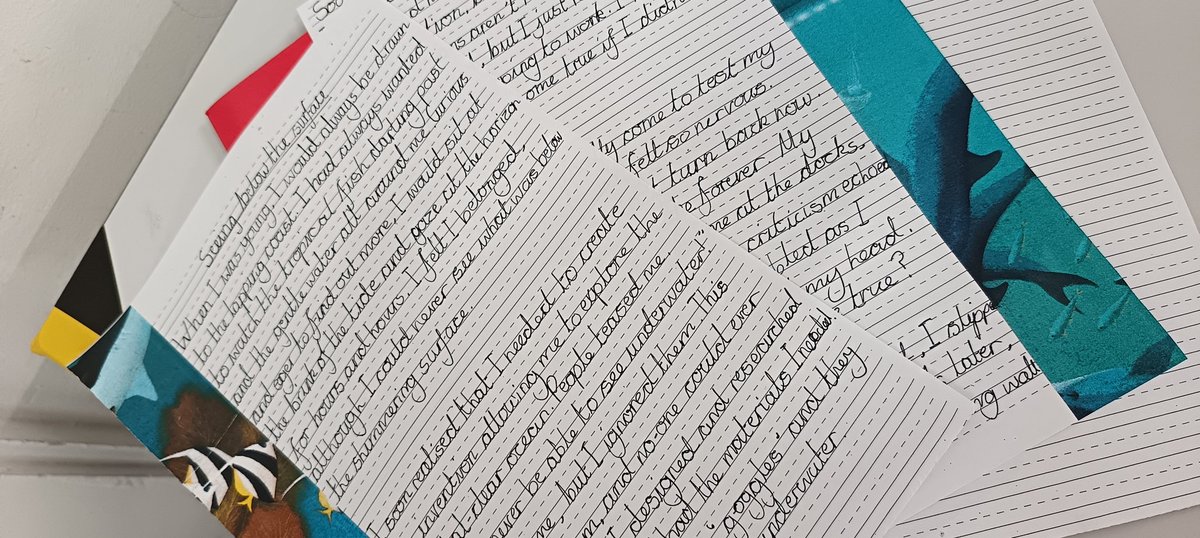 Seeing below the surface
When I was trying, I would always be drawn
to the lapping coast. I had always wanted
to watch the tropical fish darting past
and the gentle water all around me. Curious
and eager to find out more, I would sit at
the brink of the tide and gaze at the horizon
for hours and hours. I felt I belonged,
although I could never see what was below
the shimmering surface.
I soon realised that I needed to create
invention allowing me to explore the
dear ocean. People teased me
be able to see underwater"
me, but I ignored them. This
and no-one could ever
I designed and researched
had the materials I needed
'goggles' and they
underwater
Soo
tion.
s aren't
, but I just
going to work. I
come true if I didn't
come to test my
felt so nervous.
turn back now
forever. My
me at the docks.
criticism echoed
as I
my head.
true?
, I slipp
later,